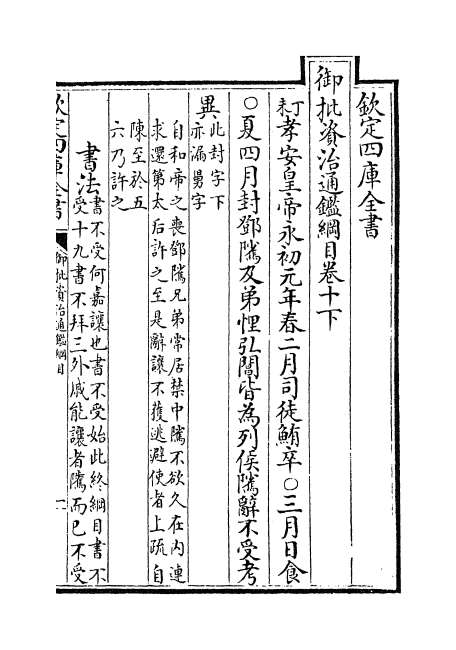 欽定四庫全書
御批資治通鑑綱目卷十下
丁未孝安皇帝永初元年春二月司徒鮪卒○三月日食
○夏四月封鄧隲及弟悝弘閶皆為列侯隲辭不受考
異此封字下
亦漏舅字
自和帝之喪鄧隲兄弟常居禁中隲不欲久在內連
求還第太后許之至是辭讓不獲逃避使者上疏自
陳至於五
六乃許之
書法書不受何嘉讓也書不受始此終綱目書不
受十九書不拜三外戚能讓者隲而已不受
欽定四庫全書
御批資治通鑑綱目
一